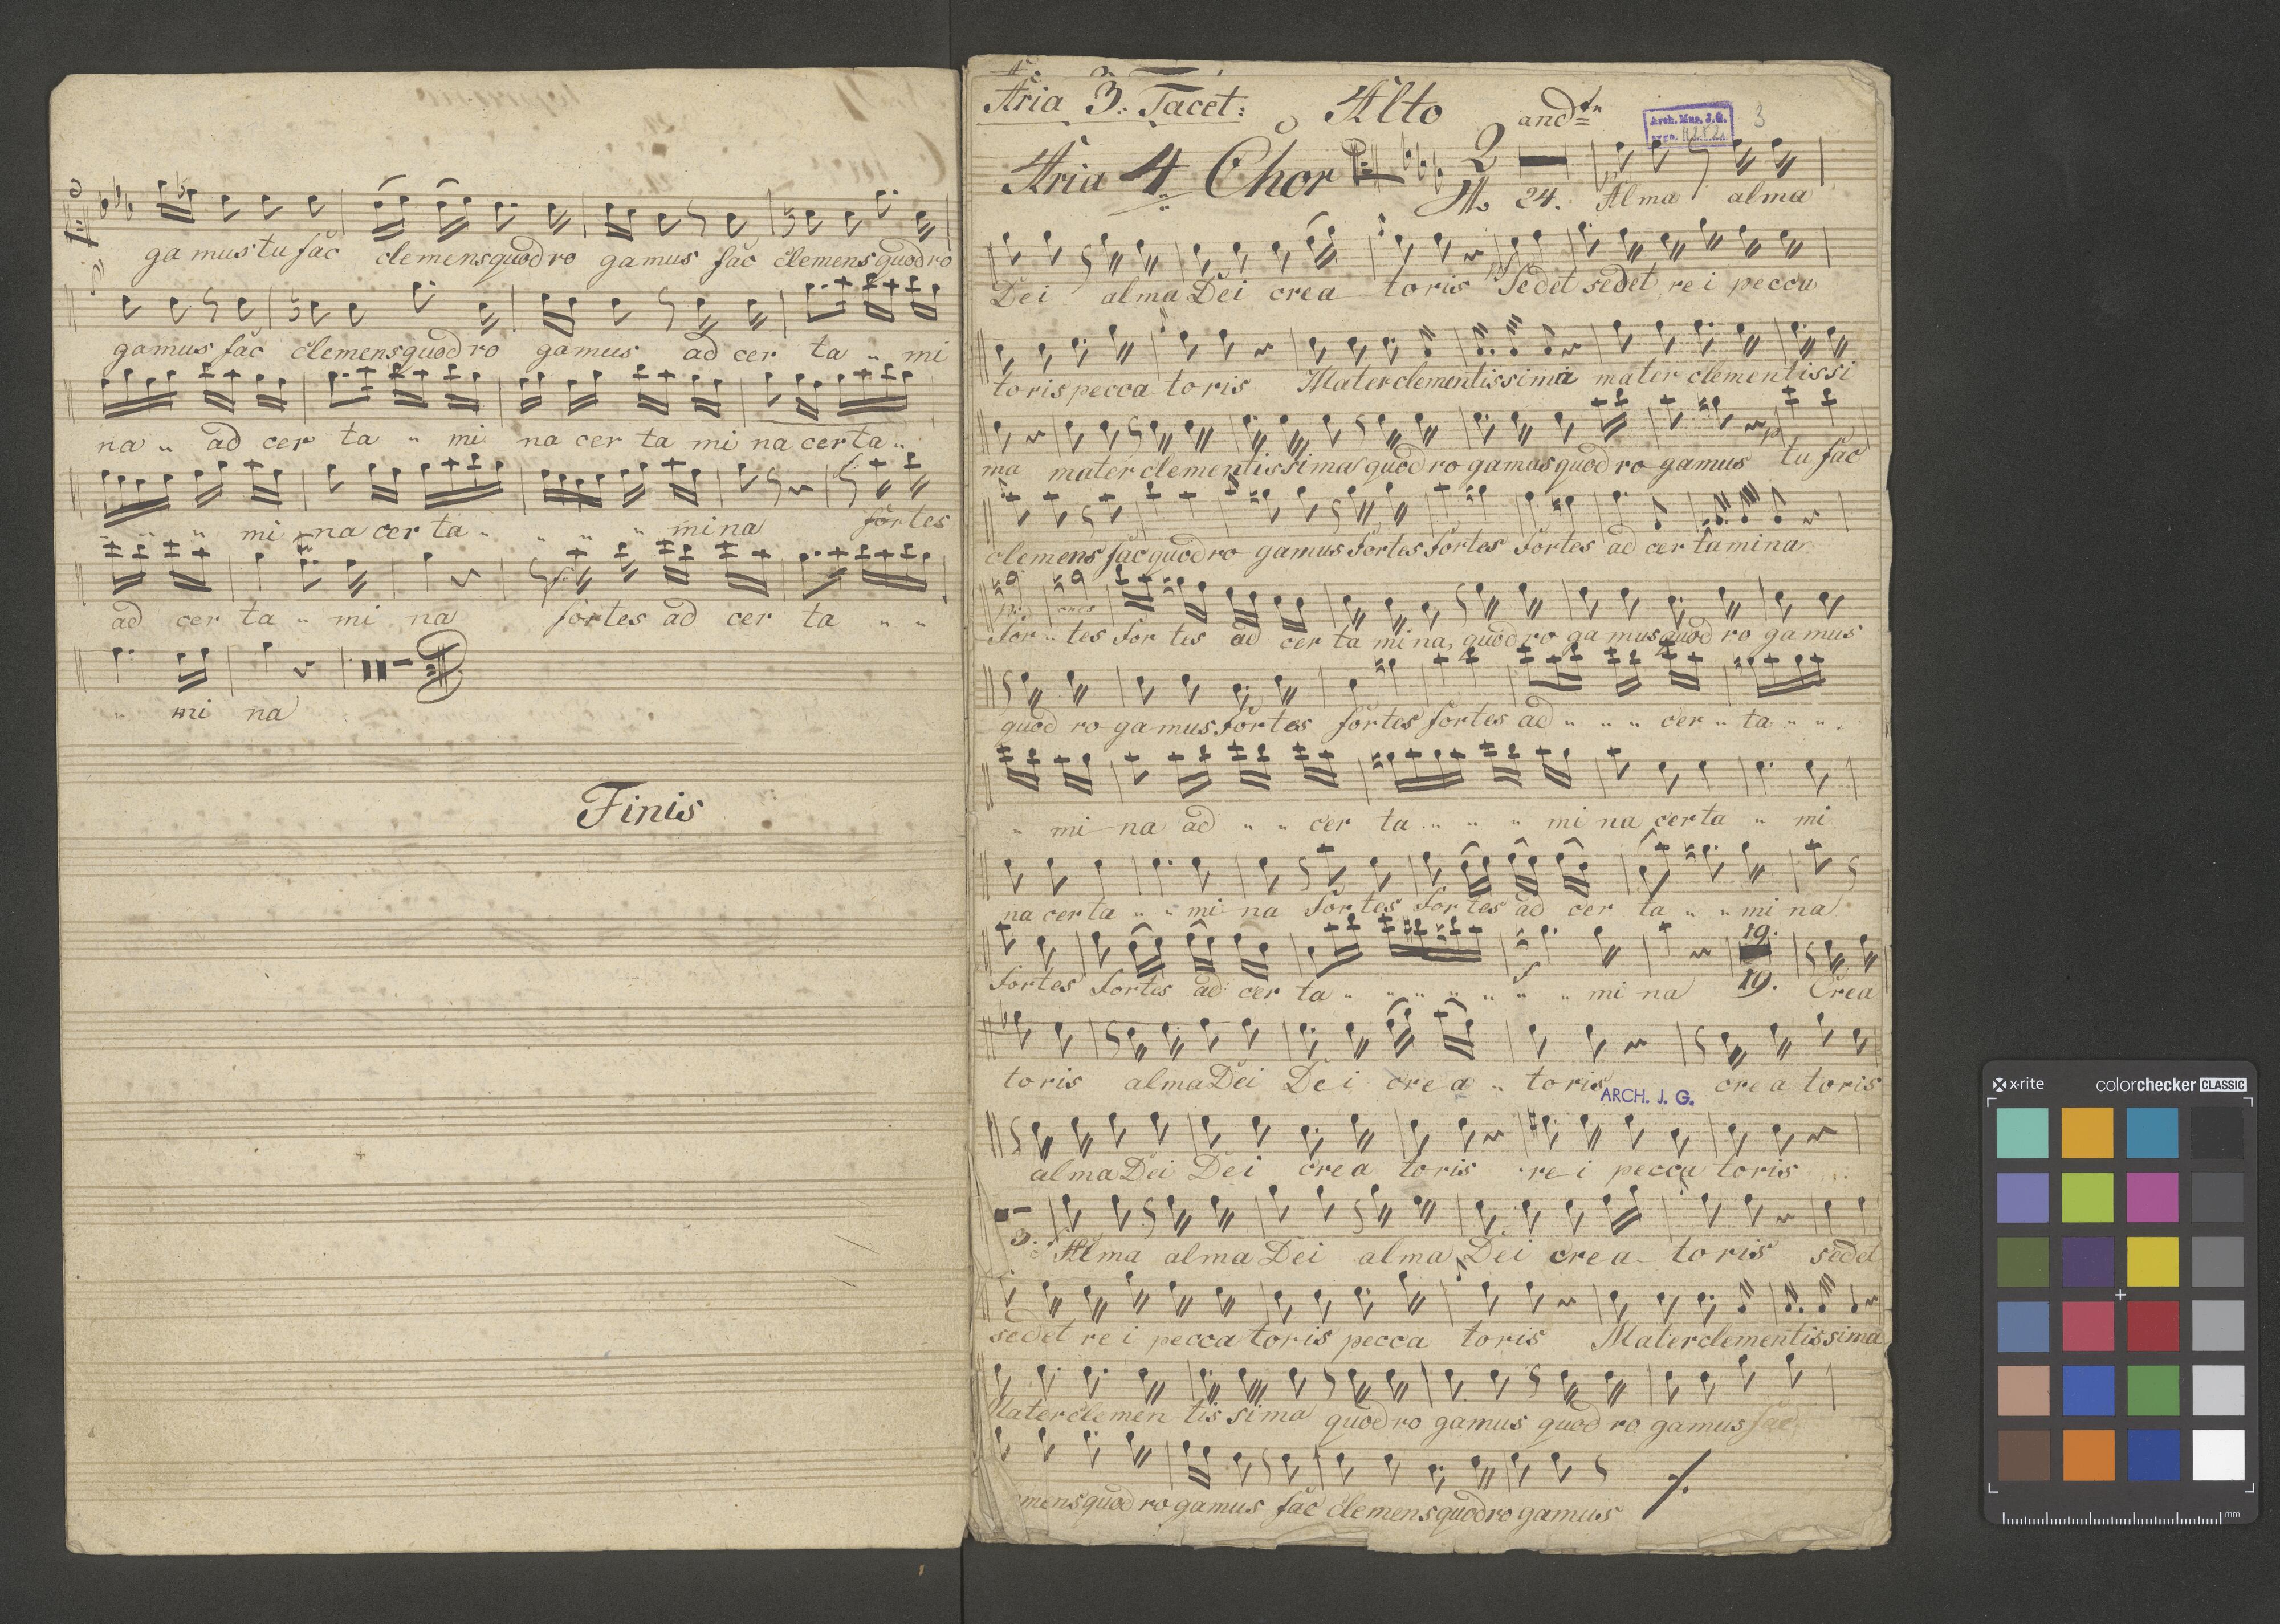 ga mus tu fac clemens quod ro gamus fac clemens quod ro
gamus fac clemens quod ro gamus ad cer ta „ mi
na „ ad cer ta „ mi na cer ta mi na cer ta „
„ „ „ mi na cer ta „ „ „ „ mi na fortes
ad cer ta „ mi na fortes ad cer ta „ „
„ mi na
Finis
Aria 3: Tacet: Alto andtn
Arch. Mus. J.G.
3
Aria 4 Chor 2
24. Alma alma
Dei alma Dei crea toris Sedet sedet rei pecca
toris pecca toris Mater clementissima mater clementissi
ma mater clementissima quod ro gamus quod ro gamus tu fac
clemens fac quod ro gamus fortes fortes fortes ad cer tamina
for „ tes for tes ad cer ta mi na, quod ro ga mus quod ro gamus
quod ro ga mus fortes fortes fortes ad „ „ „ cer „ ta „ „
„ mi na ad „ „ cer ta „ „ „ mi na certa „ mi
na cer ta „ „ mi na for tes for tes ad cer ta „ „ mi na
19.
fortes fortes ad cer ta „ „ „ „ „ „ „ mi na 19. Crea
toris alma Dei Dei cre a „ toris cre a toris
ARCH. J. G.
alma Dei Dei crea toris re i pecca toris
3. Alma alma Dei alma Dei cre a toris sedet
sedet re i pecca toris pecca toris Mater clementissima
Mater clemen tis sima quod ro gamus quod ro gamus fac
mens quod ro gamus fac clemens quod ro gamus
x·rite colorchecker CLASSIC
mm